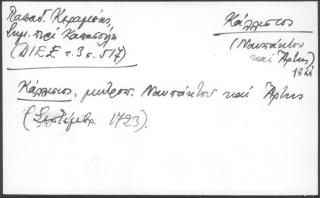 Παπαδ. Κεραμεύς,
Συμ. περί
(ΔΙΕΕ τ. 3 σ. 517)
Κάλλιστος
(Ναυπάκτου
καί Άρτης)
Κάλλιστος, μητροπ. Ναυπάκτου καί Άρτης
(Σεπτέμβρ. 1723).